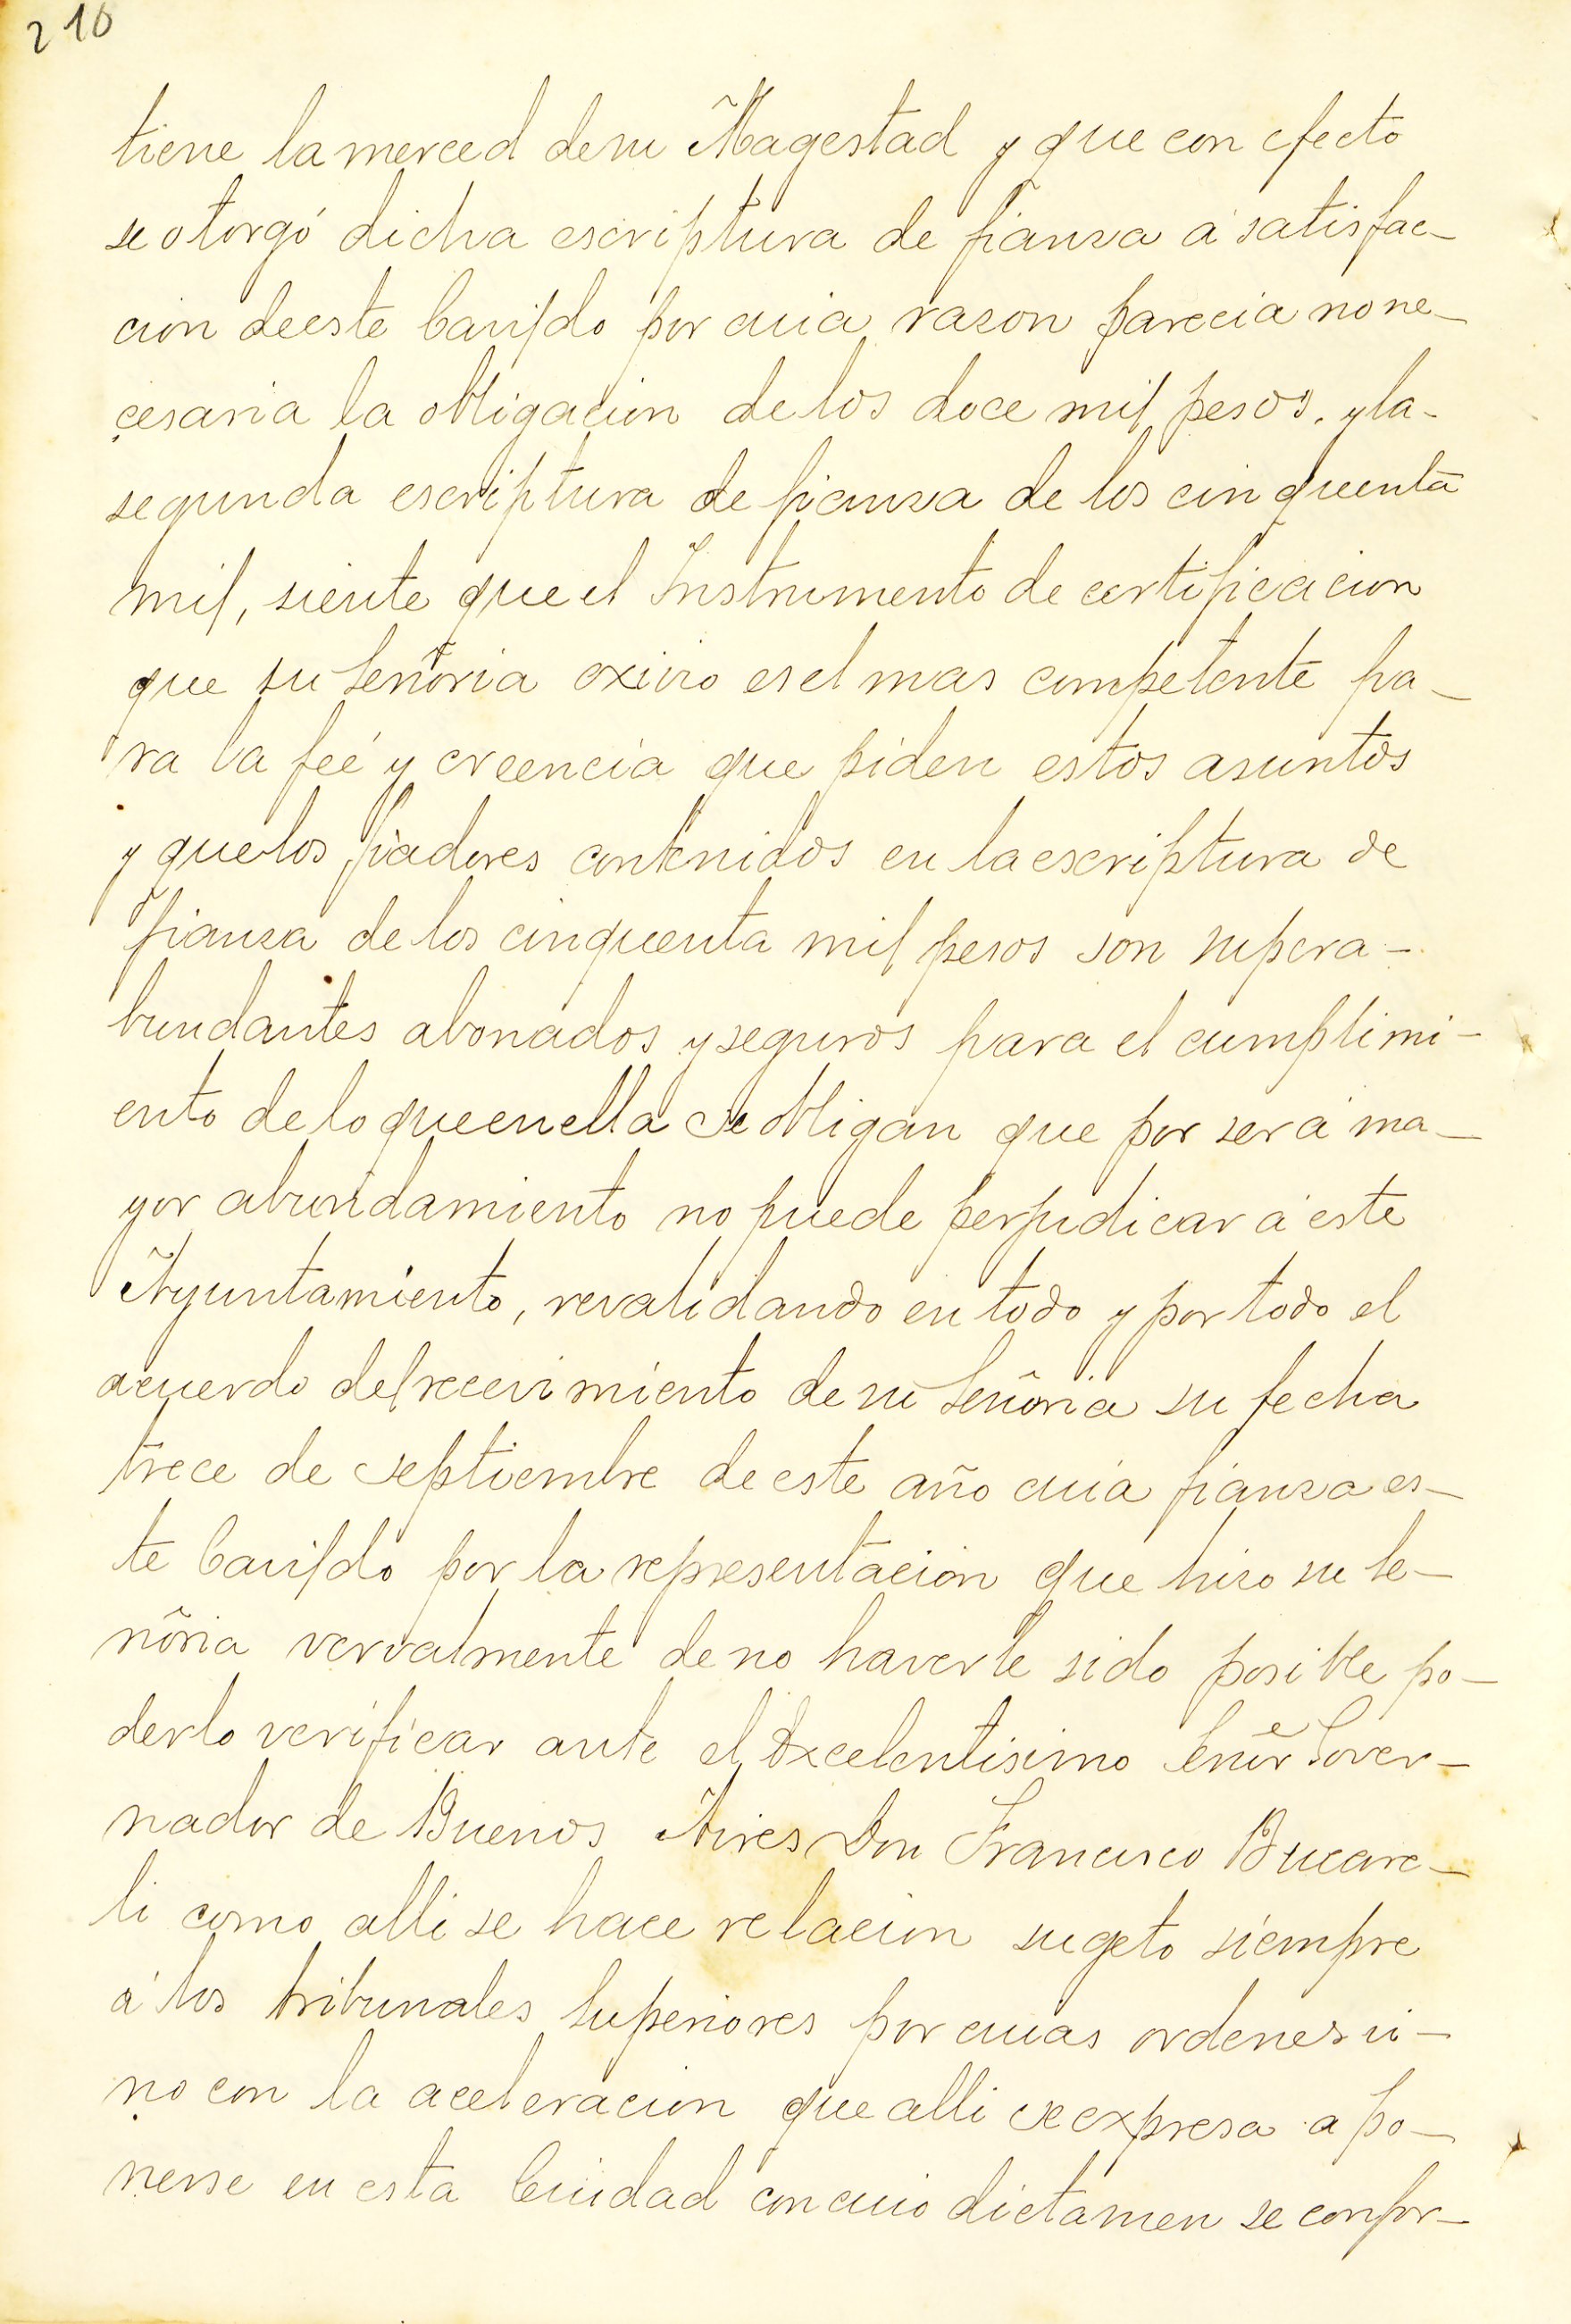 210
tiene la merced de su Magestad y que con efecto
se otorgó dicha escriptura de fianza á satisfac-
cion de este Cavildo por cuia razon parecia no ne-
cesaria la obligacion de los doce mil pesos. y la-
segunda escriptura de fianza de los cinquenta
mil, siente que el Instrumento de certificacion
que su Señoria exivio es el mas competente pa-
ra la feé y creencia que piden estos asuntos
y que los fiadores contenidos en la escriptura de
fianza de los cinquenta mil pesos son supera-
bundantes abonados y seguros para el cumplimi-
ento de lo que en ella se obligan que por ser á ma-
yor abundamiento no puede perjudicar á este
Ayuntamiento, revalidando en todo y por todo el
acuerdo del recevimiento de su Señoria su fecha
trece de septiembre de este año cuia fianza es-
te Cavildo por la representacion que hizo su Se-
ñoria vervalmente de no haverle sido posible po-
derlo verificar ante el Excelentisimo Señor Gover-
nador de Buenos Aires Don Francisco Bucare-
li como alli se hace relacion sugeto siempre
á los tribunales Superiores por cuias ordenes vi-
no con la aceleracion que alli se expresa a po-
nerse en esta Ciudad con cuio dictamen se confor-